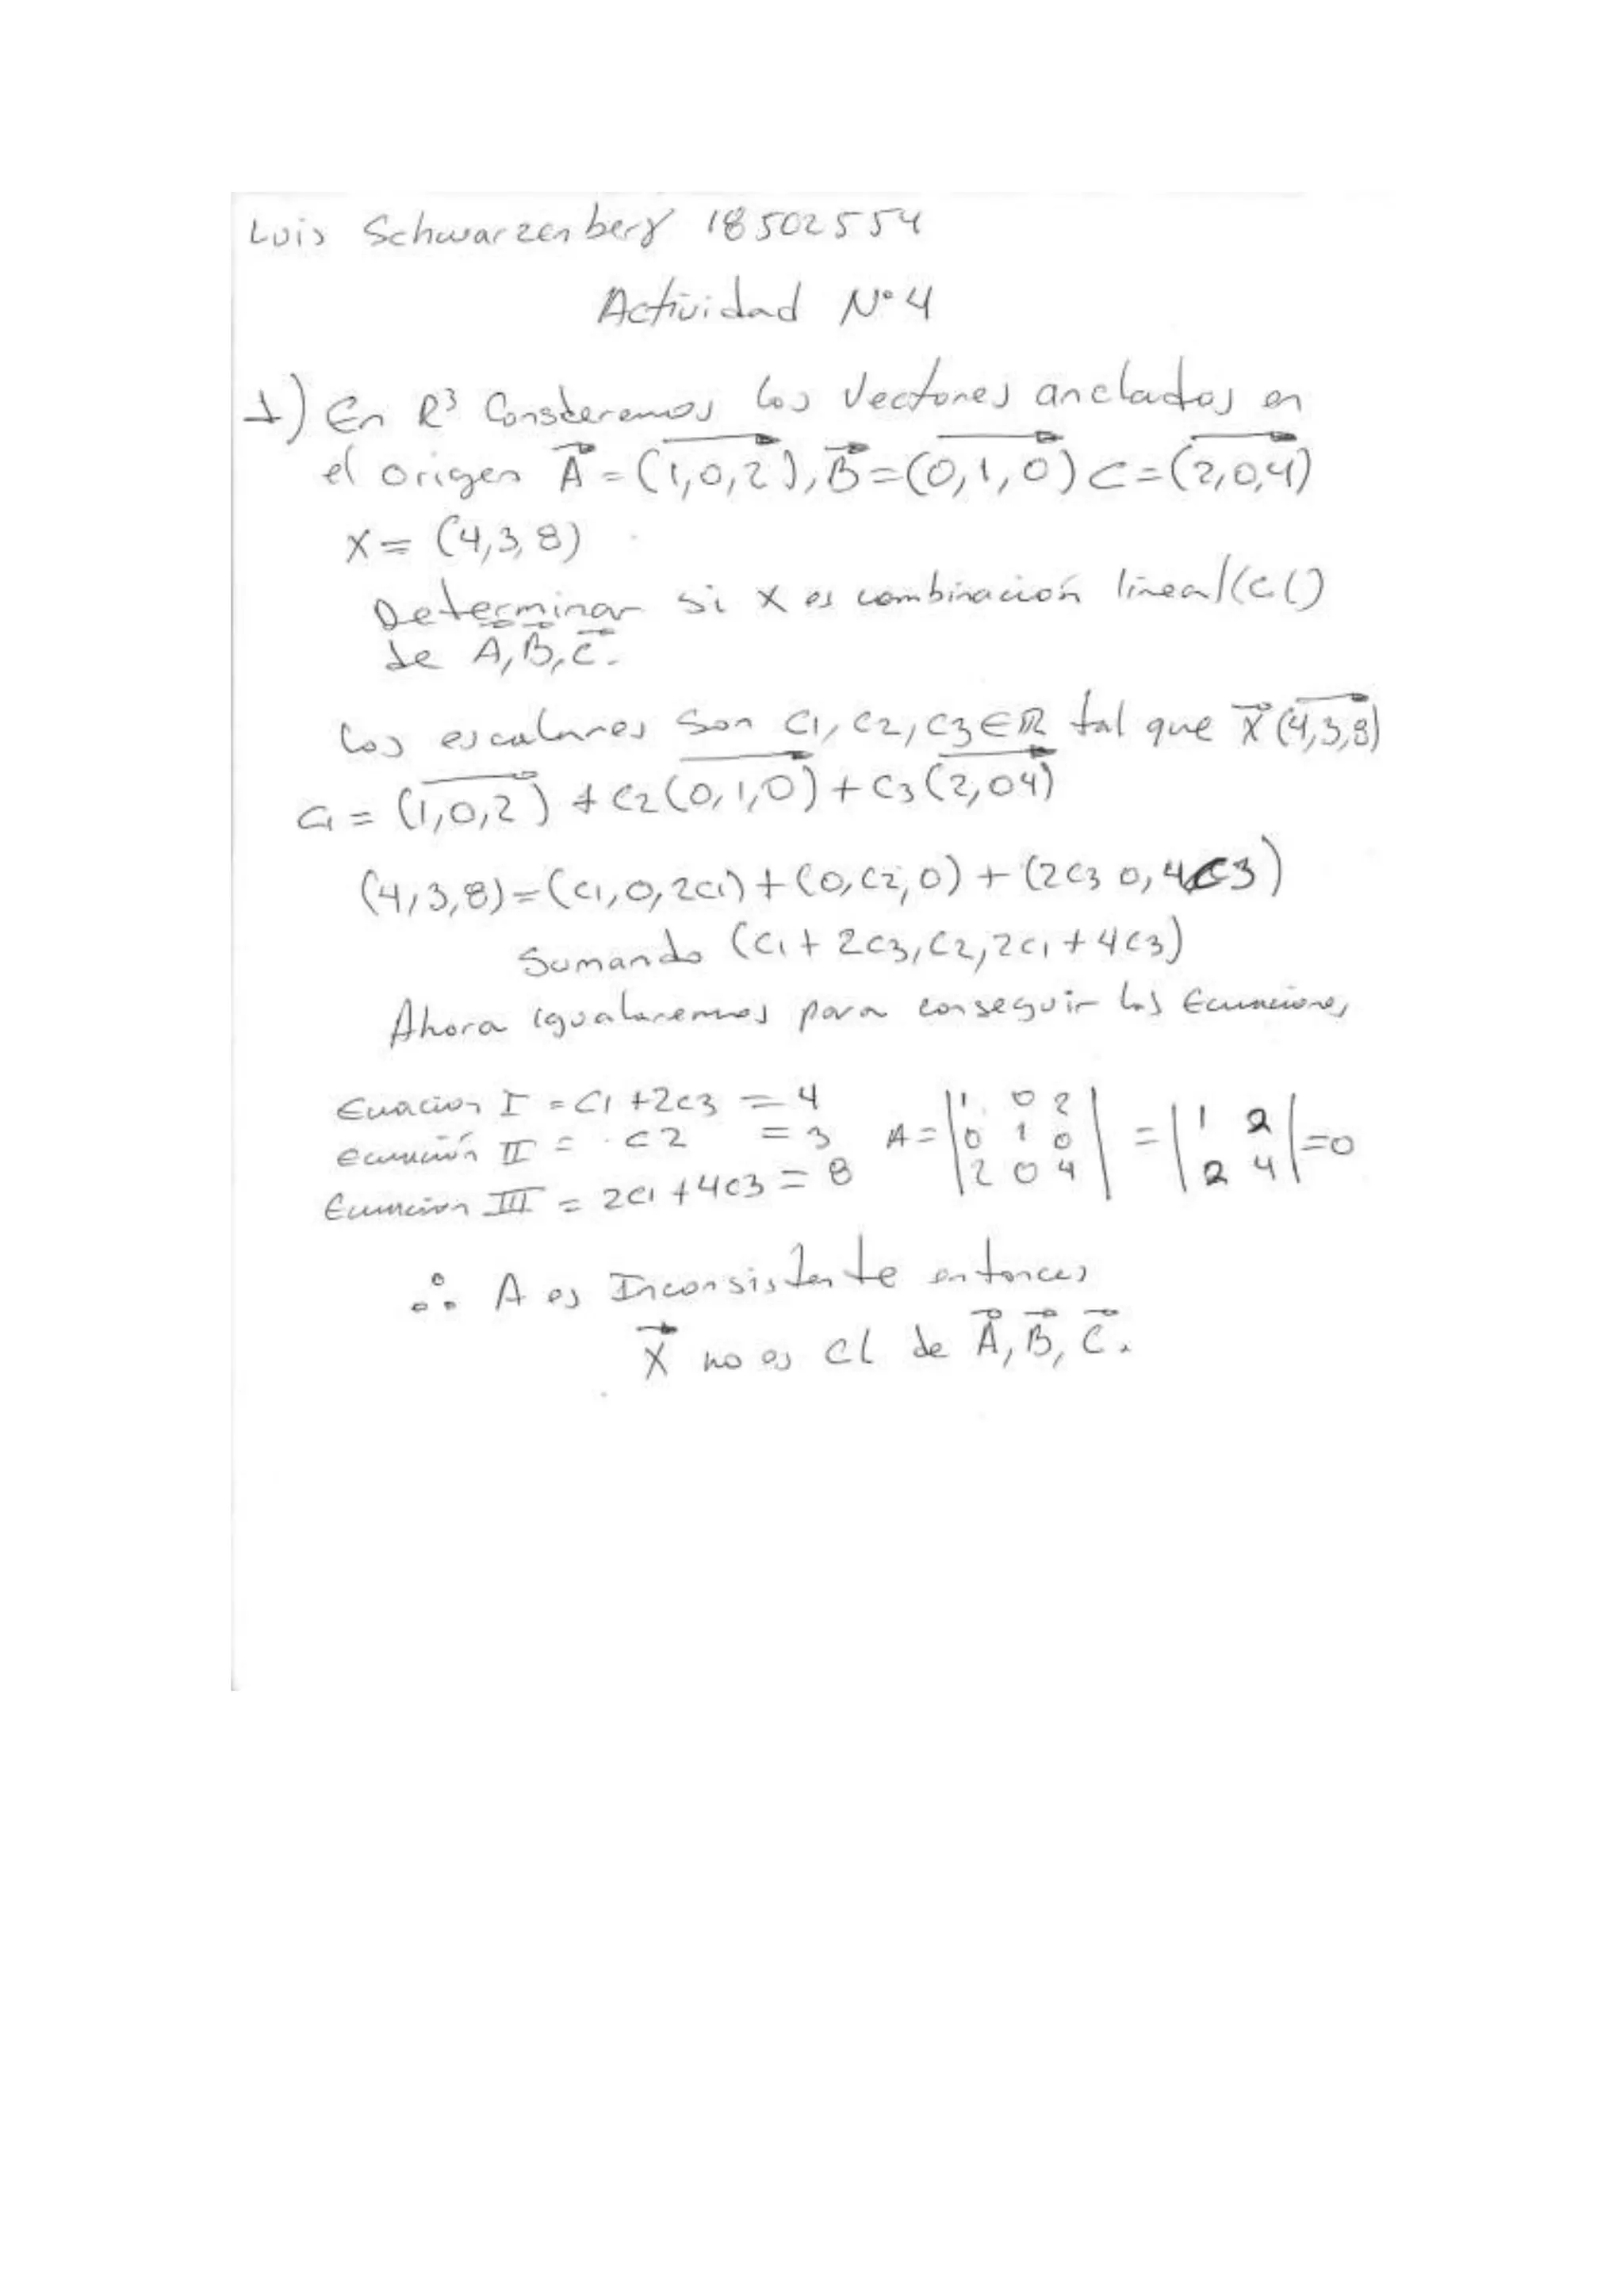 Luis Schwarzenberg 18502554
Actividad N°4
1) En R³ Consderemos los Vectores anclados en
el origen A = (1,0,2), B = (0,1,0) C = (2,0,4)
X = (4,3,8)
Determinar si X es combinación lineal (CL)
de A, B, C.
los escalares son C1, C2, C3 ∈ ℝ tal que X (4,3,8)
C1 = (1,0,2) + C2 (0,1,0) + C3 (2,04)
(4,3,8) = (C1,0,2C1) + (0,C2,0) + (2C3 0,4C3)
Sumando (C1 + 2C3, C2, 2C1 + 4C3)
Ahora igualaremos para conseguir las Ecuaciones
Euacion I = C1 + 2C3 = 4
ecuación II = C2 = 3
Ecuacion III = 2C1 + 4C3 = 8
A = |1 0 2| = |1 2| = 0
|0 1 0| |2 4|
|2 0 4|
∴ A es Inconsistente entonces
X no es CL de A, B, C.